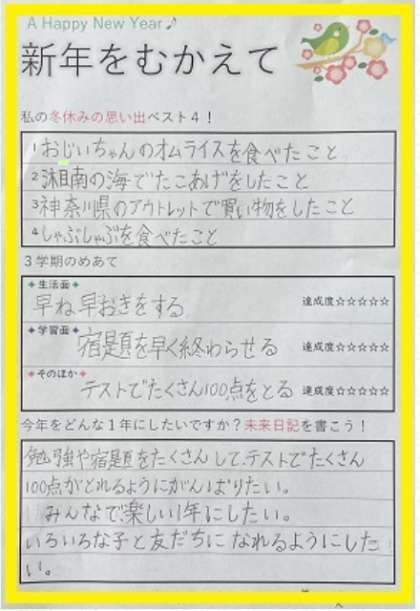 A Happy New Year♪
新年をむかえて
私の冬休みの思い出ベスト４！
1 おじいちゃんのオムライスを食べたこと
2 湘南の海でたこあげをしたこと
3 神奈川県のアウトレットで買い物をしたこと
4 しゃぶしゃぶを食べたこと
３学期のめあて
✦生活面✦
早ね早おきをする 達成度☆☆☆☆☆
✦学習面✦
宿題を早く終わらせる 達成度☆☆☆☆☆
✦そのほか✦
テストでたくさん100点をとる 達成度☆☆☆☆☆
今年をどんな１年にしたいですか？未来日記を書こう！
勉強や宿題をたくさんして、テストでたくさん
100点がとれるようにがんばりたい。
みんなで楽しい1年にしたい。
いろいろな子と友だちになれるようにした
い。